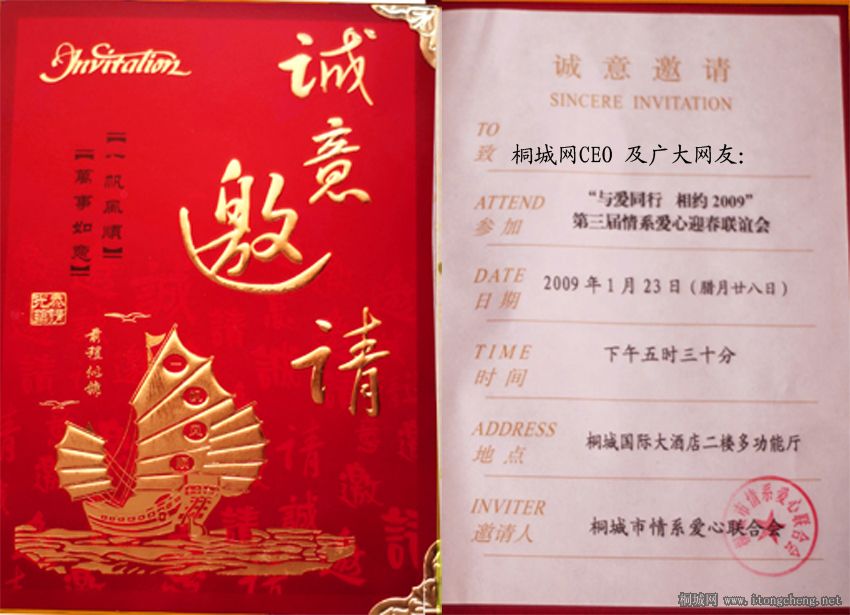 Invitation
诚意邀请
【一帆風順】
【萬事如意】
前程似錦
一帆風順
诚意邀请
SINCERE INVITATION
TO
致 桐城网CEO 及广大网友:
ATTEND
参加
“与爱同行 相约2009”
第三届情系爱心迎春联谊会
DATE
日期
2009年1月23日（腊月廿八日）
TIME
时间
下午五时三十分
ADDRESS
地点
桐城国际大酒店二楼多功能厅
INVITER
邀请人
桐城市情系爱心联合会
桐城市情系爱心联合会
桐城网 www.itongcheng.net